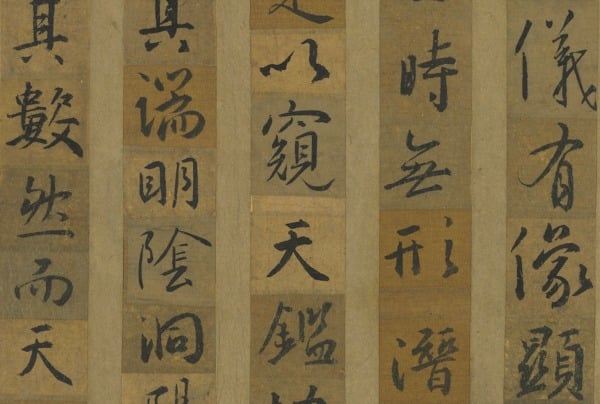 儀有像顯
時無形潛
以窺天鑑
其端明陰洞
其數然而天